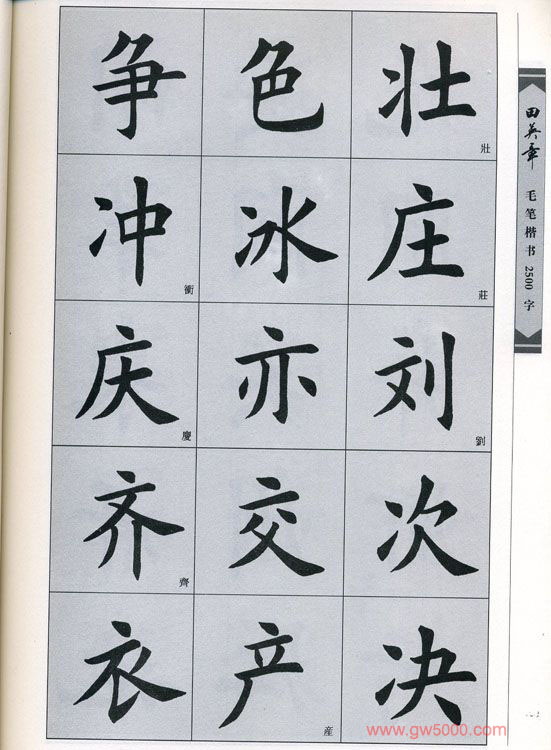 争 色 壮 壯
冲 衝 冰 庄 莊
庆 慶 亦 刘 劉
齐 齊 交 次
衣 产 産 决
田英章 毛笔楷书 2500 字
www.gw5000.com